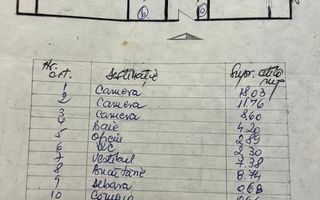 6
Nr. crt.
Destinație
Supr. utilă mp
1 Camera 18.03
2 Camera 11.76
3 Camera 8.60
4 Baie 4.20
5 Oficiu 2.89
6 WC 2.30
7 Vestibul 7.38
8 Bucătărie 8.74
9 Debara 0.68
10